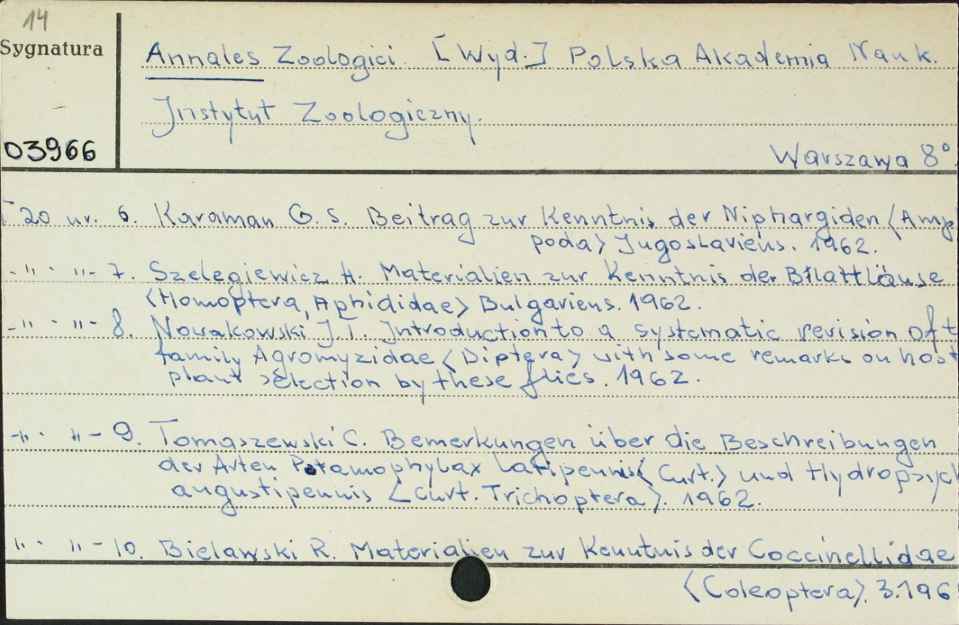 14
Sygnatura
Annales Zoologici [Wyd.] Polska Akademia Nauk.
Instytut Zoologiczny.
03966
Warszawa 8°
T 20 nr. 6. Karaman G. S. Beitrag zur Kenntnis der Niphargiden <Amp
poda> Jugoslaviens. 1962.
-"- "- 7. Szelegiewicz H. Materialien zur Kenntnis der Blattläuse
<Homoptera, Aphididae> Bulgariens. 1962.
-"- "- 8. Nowakowski J. T. Introduction to a systematic revision of t
family Agromyzidae <Diptera> with some remarks on host
plant selection by these flies. 1962.
-"- "- 9. Tomaszewski C. Bemerkungen über die Beschreibungen
der Arten Potamophylax latipennis <Curt.> und Hydropsych
augustipennis <Curt. Trichoptera>. 1962.
"- "- 10. Bielawski R. Materialien zur Kenntnis der Coccinellidae
<Coleoptera>. 3. 196